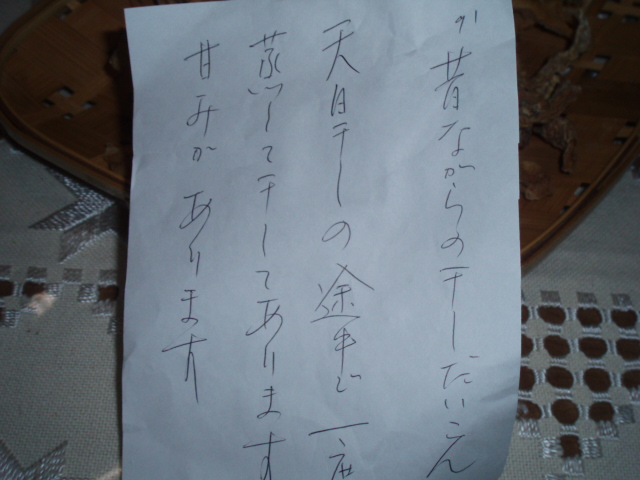 〃昔ながらの干しだいこん
天日干しの途中で一度
蒸して干してあります
甘みがあります